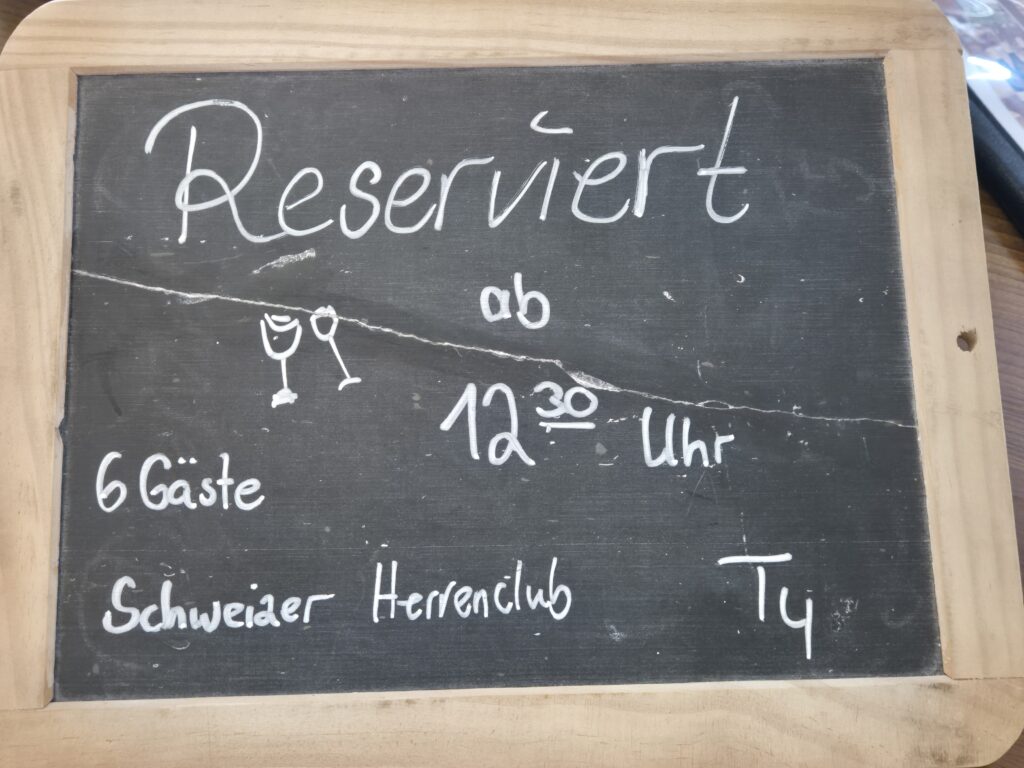 Reserviert
ab
12³⁰ Uhr
6 Gäste
Schweizer Herrenclub
T4